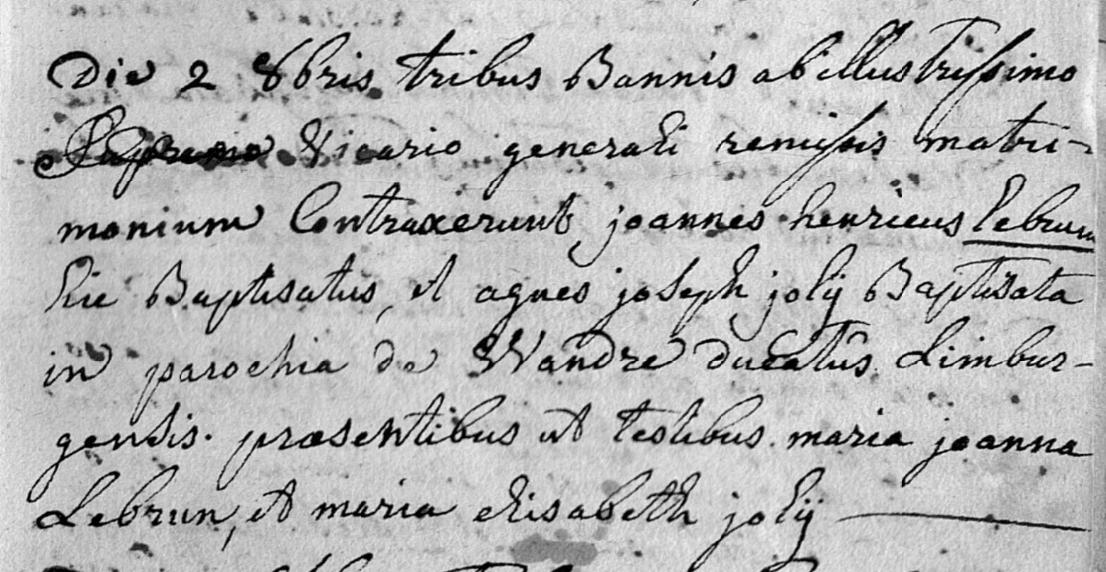 Die 2 8bris tribus Bannis ab illustrissimo
Vicario generali remissis matri-
monium Contraxerunt joannes henricus lebrun
hic Baptisatus, et agnes joseph jolÿ Baptisata
in parochia de Wandre ducatûs Limbur-
gensis. præsentibus ut testibus maria joanna
Lebrun, et maria elisabeth jolÿ